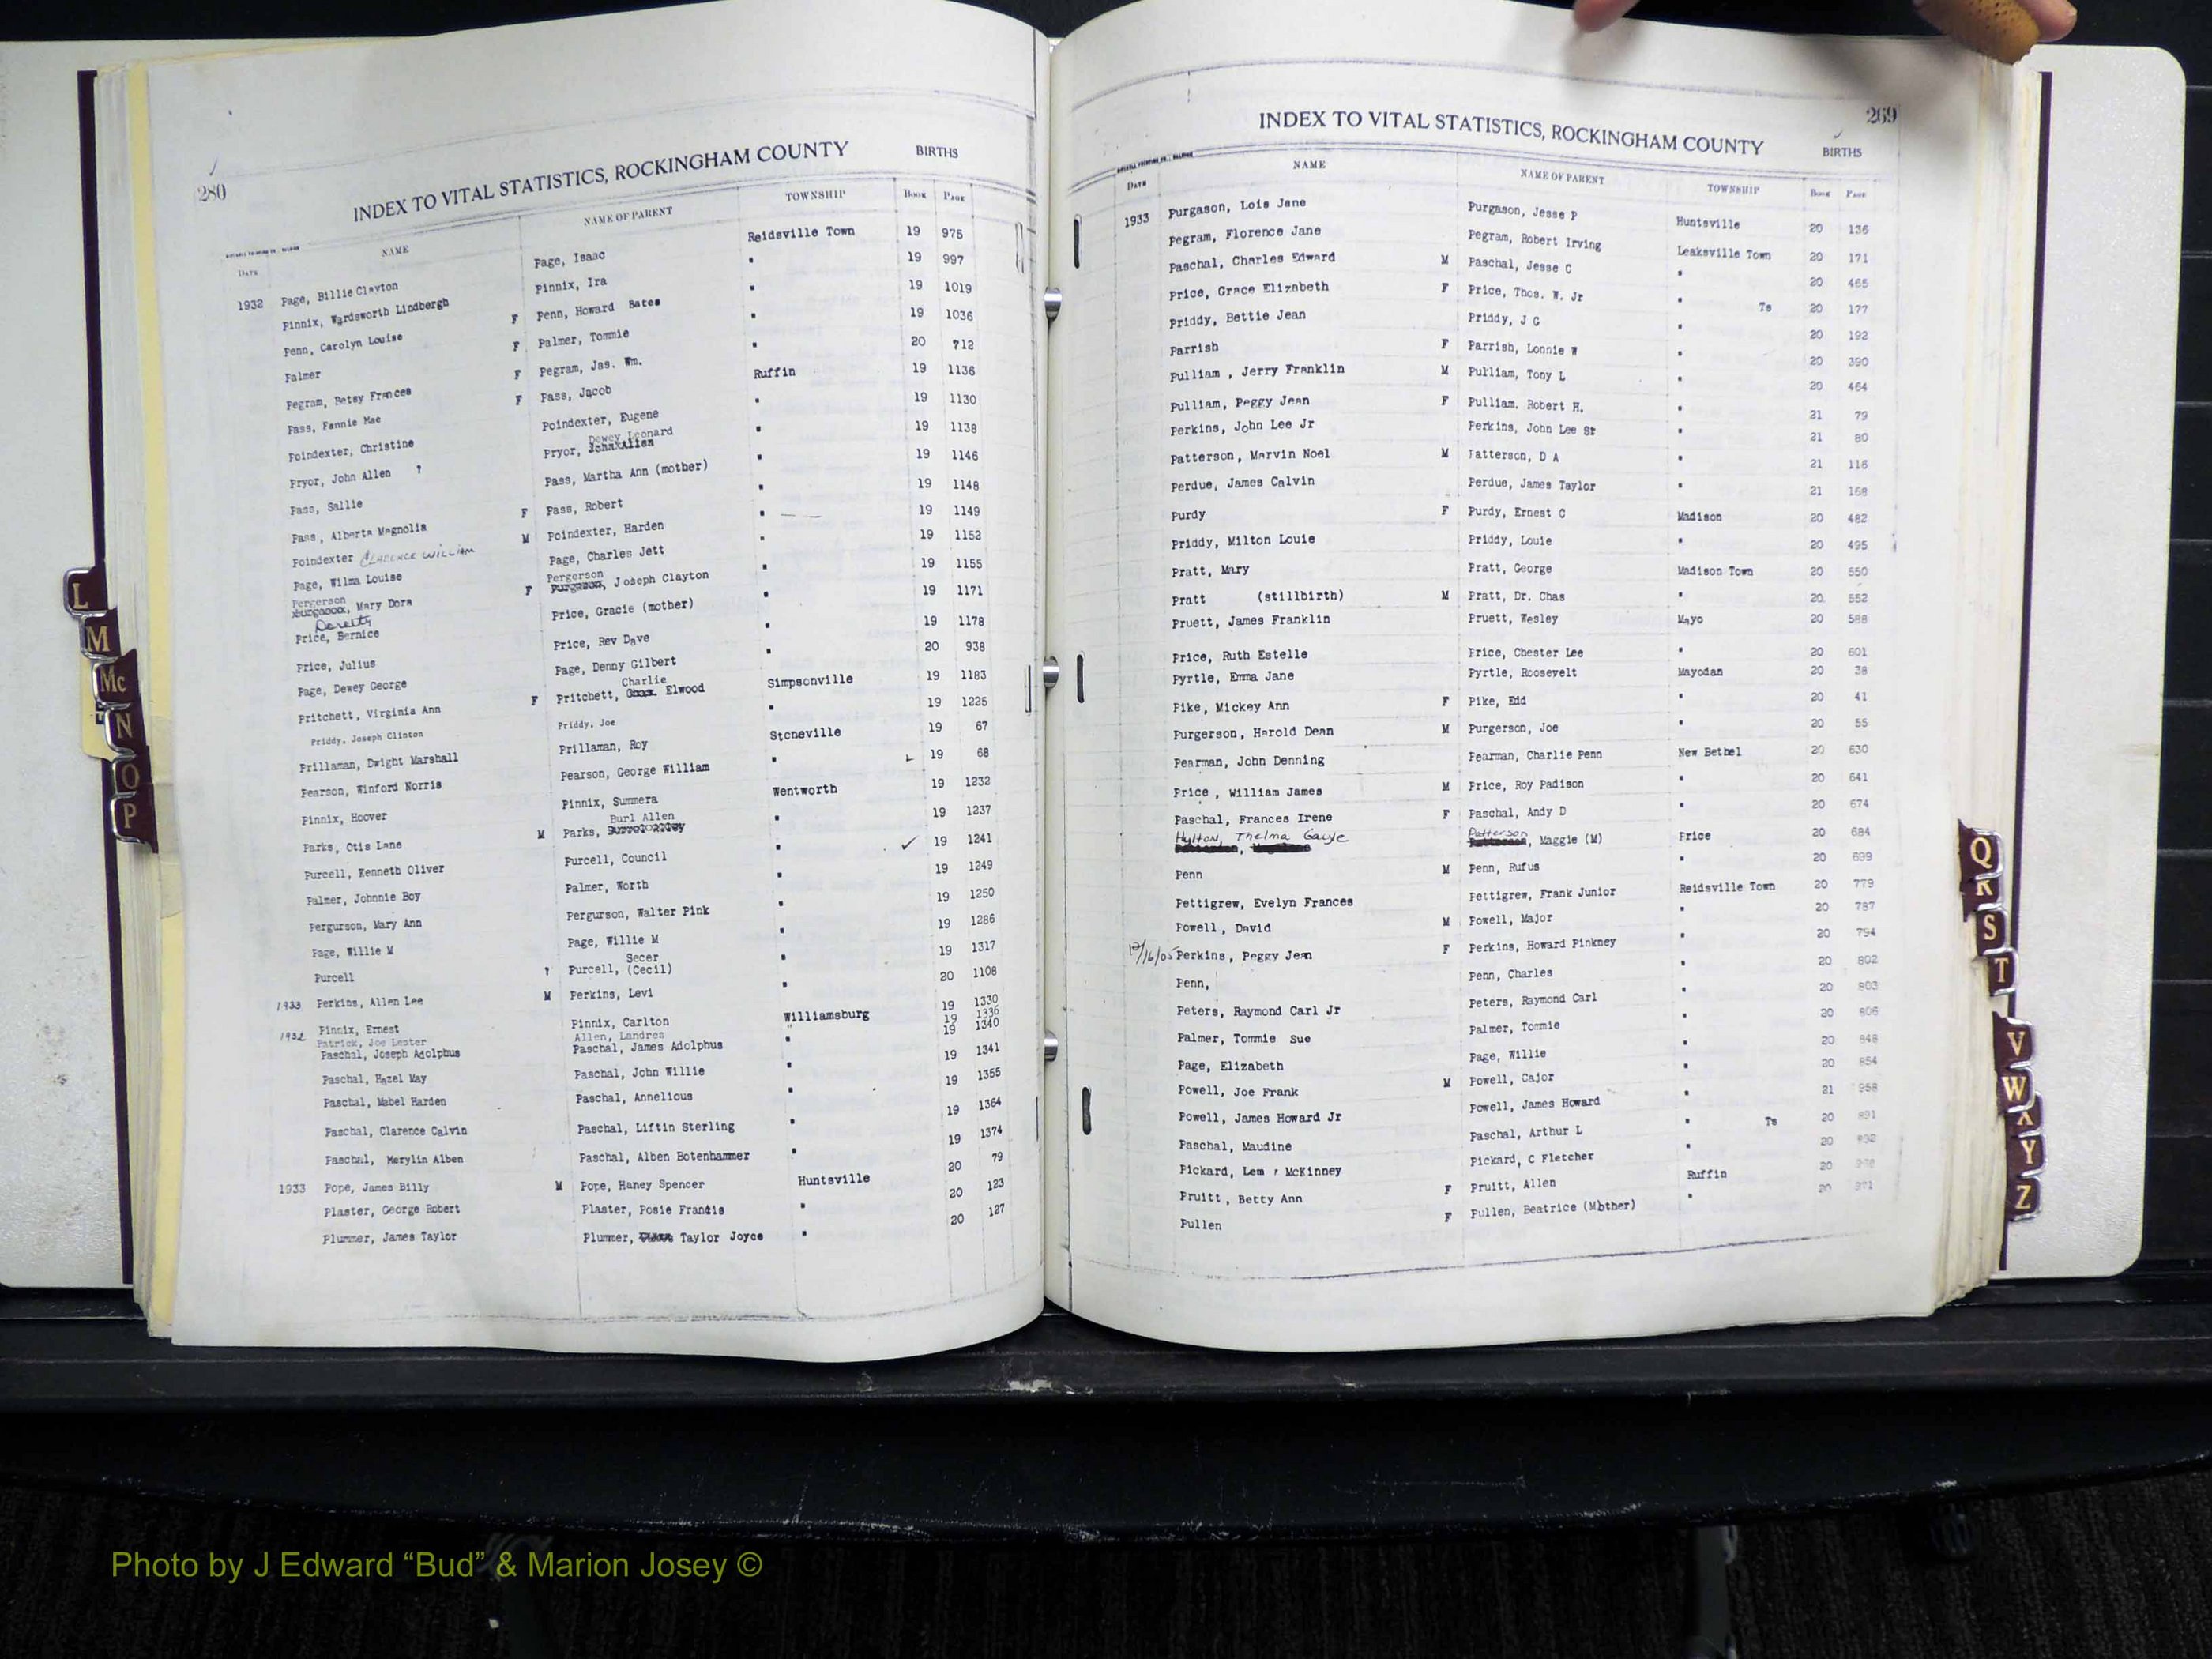 280
INDEX TO VITAL STATISTICS, ROCKINGHAM COUNTY BIRTHS
DATE NAME NAME OF PARENT TOWNSHIP BOOK PAGE
1932 Page, Billie Clayton Page, Isaac Reidsville Town 19 975
Pinnix, Wardsworth Lindbergh Pinnix, Ira " 19 997
Penn, Carolyn Louise F Penn, Howard Bates " 19 1019
Palmer F Palmer, Tommie " 19 1036
Pegram, Betsy Frances F Pegram, Jas. Wm. " 20 712
Pass, Fannie Mae F Pass, Jacob Ruffin 19 1136
Poindexter, Christine Poindexter, Eugene " 19 1130
Pryor, John Allen ? Pryor, Dewey Leonard " 19 1138
Pass, Sallie Pass, Martha Ann (mother) " 19 1146
Pass, Alberta Magnolia F Pass, Robert " 19 1148
Poindexter CLARENCE WILLIAM M Poindexter, Harden " 19 1149
Page, Wilma Louise Page, Charles Jett " 19 1152
Pergerson, Mary Dora F Pergerson, Joseph Clayton " 19 1155
Price, Bernice Price, Gracie (mother) " 19 1171
Price, Julius Price, Rev Dave " 19 1178
Page, Dewey George Page, Denny Gilbert " 20 938
Pritchett, Virginia Ann F Pritchett, Charlie Elwood Simpsonville 19 1183
Priddy, Joseph Clinton Priddy, Joe " 19 1225
Prillaman, Dwight Marshall Prillaman, Roy Stoneville 19 67
Pearson, Winford Norris Pearson, George William " 19 68
Pinnix, Hoover Pinnix, Summera Wentworth 19 1232
Parks, Otis Lane M Parks, Burl Allen " 19 1237
Purcell, Kenneth Oliver Purcell, Council " 19 1241
Palmer, Johnnie Boy Palmer, Worth " 19 1249
Pergurson, Mary Ann Pergurson, Walter Pink " 19 1250
Page, Willie M Page, Willie M " 19 1286
Purcell ? Purcell, Secer (Cecil) " 19 1317
1933 Perkins, Allen Lee M Perkins, Levi " 20 1108
1932 Pinnix, Ernest Pinnix, Carlton Williamsburg 19 1330
Patrick, Joe Lester Allen, Landres " 19 1336
Paschal, Joseph Adolphus Paschal, James Adolphus " 19 1340
Paschal, Hazel May Paschal, John Willie " 19 1341
Paschal, Mabel Harden Paschal, Annelious " 19 1355
Paschal, Clarence Calvin Paschal, Liftin Sterling " 19 1364
Paschal, Merylin Alben Paschal, Alben Botenhammer " 19 1374
1933 Pope, James Billy M Pope, Haney Spencer Huntsville 20 79
Plaster, George Robert Plaster, Posie Francis " 20 123
Plummer, James Taylor Plummer, Taylor Joyce " 20 127
269
INDEX TO VITAL STATISTICS, ROCKINGHAM COUNTY BIRTHS
DATE NAME NAME OF PARENT TOWNSHIP BOOK PAGE
1933 Purgason, Lois Jane Purgason, Jesse P Huntsville 20 136
Pegram, Florence Jane Pegram, Robert Irving Leaksville Town 20 171
Paschal, Charles Edward M Paschal, Jesse C " 20 465
Price, Grace Elizabeth F Price, Thos. W. Jr " Ts 20 177
Priddy, Bettie Jean Priddy, J G " 20 192
Parrish F Parrish, Lonnie W " 20 390
Pulliam , Jerry Franklin M Pulliam, Tony L " 20 464
Pulliam, Peggy Jean F Pulliam. Robert H. " 21 79
Perkins, John Lee Jr Perkins, John Lee Sr " 21 80
Patterson, Marvin Noel M Patterson, D A " 21 116
Perdue, James Calvin Perdue, James Taylor " 21 168
Purdy F Purdy, Ernest C Madison 20 482
Priddy, Milton Louie Priddy, Louie " 20 495
Pratt, Mary Pratt, George Madison Town 20 550
Pratt (stillbirth) M Pratt, Dr. Chas " 20 552
Pruett, James Franklin Pruett, Wesley Mayo 20 588
Price, Ruth Estelle Price, Chester Lee " 20 601
Pyrtle, Emma Jane Pyrtle, Roosevelt Mayodan 20 38
Pike, Mickey Ann F Pike, Edd " 20 41
Purgerson, Harold Dean M Purgerson, Joe " 20 55
Pearman, John Denning Pearman, Charlie Penn New Bethel 20 630
Price , William James M Price, Roy Padison " 20 641
Paschal, Frances Irene F Paschal, Andy D " 20 674
Hylton, Thelma Gauye Patterson, Maggie (M) Price 20 684
Penn M Penn, Rufus " 20 699
Pettigrew, Evelyn Frances Pettigrew, Frank Junior Reidsville Town 20 779
Powell, David M Powell, Major " 20 787
12/16/05 Perkins, Peggy Jean F Perkins, Howard Pinkney " 20 794
Penn, Penn, Charles " 20 802
Peters, Raymond Carl Jr Peters, Raymond Carl " 20 803
Palmer, Tommie Sue Palmer, Tommie " 20 806
Page, Elizabeth Page, Willie " 20 848
Powell, Joe Frank M Powell, Cajor " 20 854
Powell, James Howard Jr Powell, James Howard " 21 958
Paschal, Maudine Paschal, Arthur L " Ts 20 891
Pickard, Lem McKinney Pickard, C Fletcher " 20
Pruitt, Betty Ann F Pruitt, Allen Ruffin 20
Pullen F Pullen, Beatrice (Mother) " 20
L
M
Mc
N
O
P
Q
R
S
T
V
W
X
Y
Z
Photo by J Edward “Bud” & Marion Josey ©